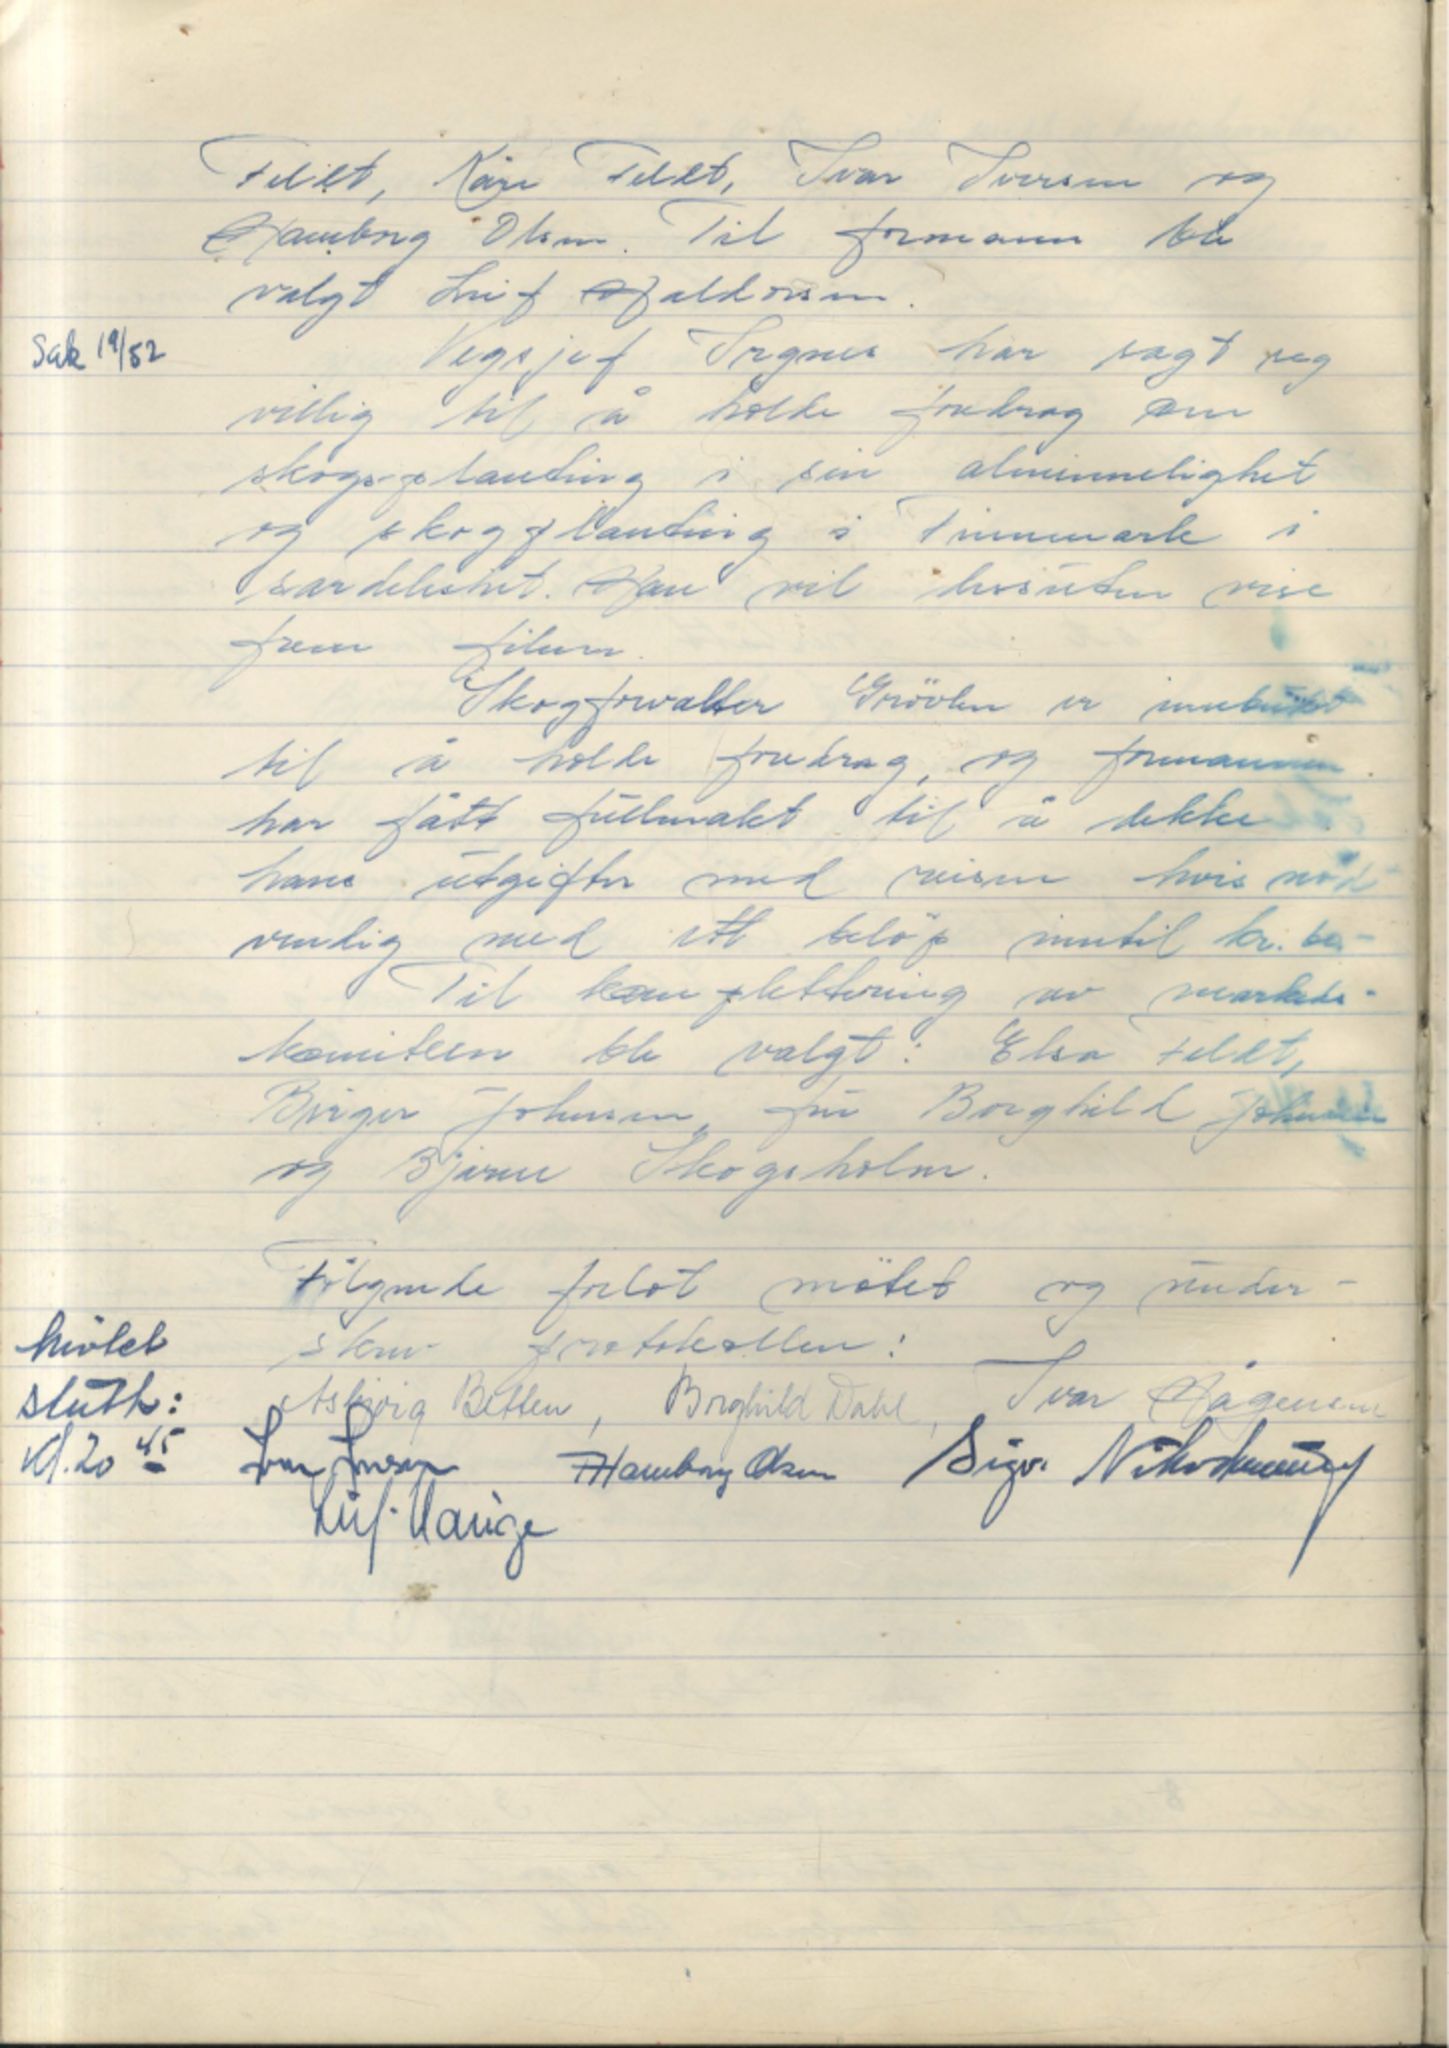 Feldt, Kåre Feldt, Ivar Iversen og
Hamborg Olsen. Til formann ble
valgt Leif Haldorsen.
Sak 19/52
Vegsjef Irgens har sagt seg
villig til å holde foredrag om
skogs-planting i sin alminnelighet
og skogplanting i Finnmark i
særdeleshet. Han vil dessuten vise
frem filmen.
Skogforvalter Grövlen er innbudt
til å holde foredrag, og formannen
har fått fullmakt til å dekke
hans utgifter med reisen hvis nöd-
vendig med ett belöp inntil kr.
Til komplettering av markeds-
komiteen ble valgt: Elsa Feldt,
Birger Johnsen, fru Borghild Johnsen
og Bjarne Skogsholm.
Fölgende forlot mötet og under-
skrev protokollen:
Mötet
slutt:
kl. 20 45
Asbjörg Betten, Borghild Dahl, Ivar Hågensen
Ivar Iversen Hamborg Olsen Sigv. Nikodemussen
Leif Hauge